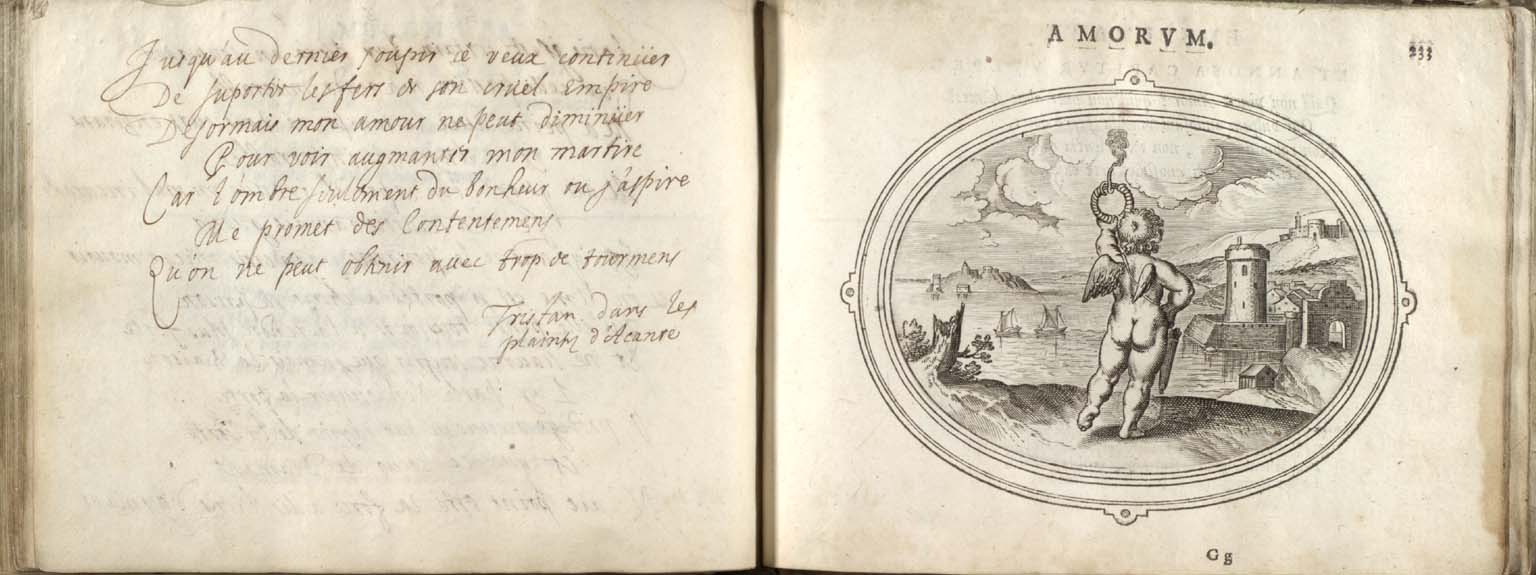 Jusqu'au dernier soupir ie veux continüer
De suporter les fers de son cruel Empire
Desormais mon amour ne peut diminüer
Pour voir augmanter mon martire
Car l'ombre seulement du bonheur ou j'aspire
Me promet des Contentemens
Qu'on ne peut obtenir avec trop de tourmens
Tristan dans les
plaintz d'Acante
AMORVM.
233
Gg